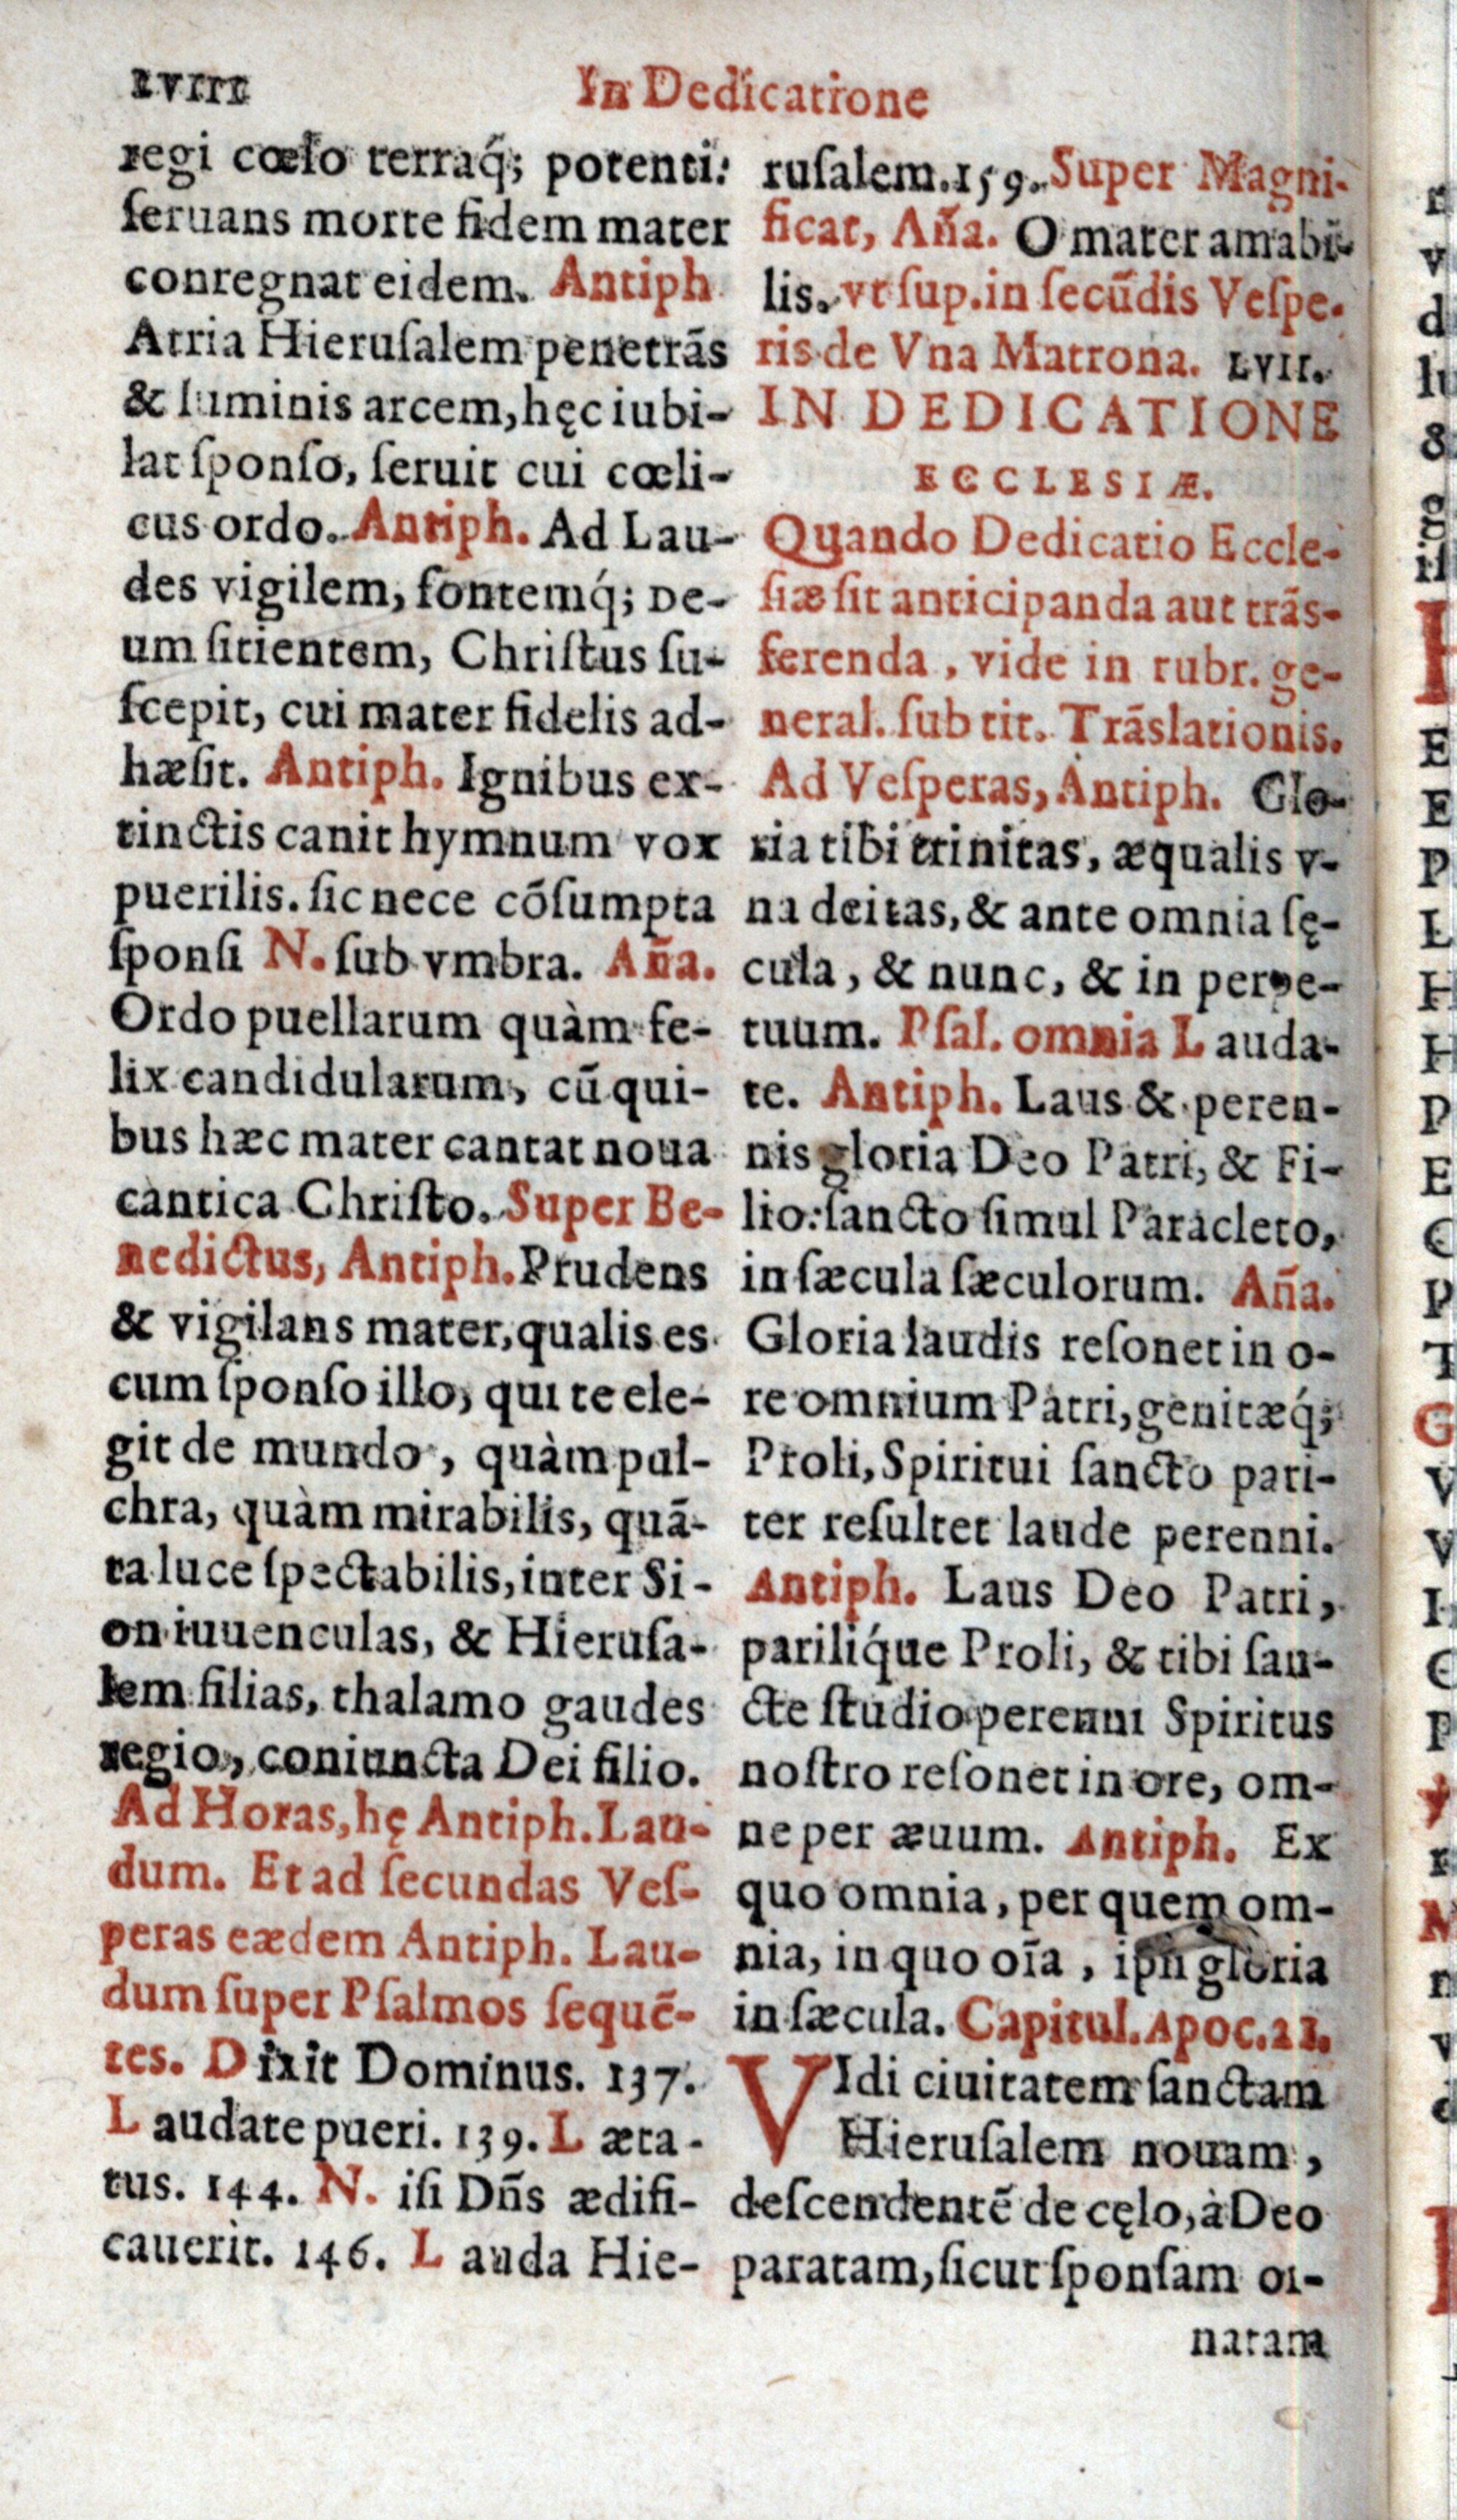 LVIII
In Dedicatione
regi cœlo terraq́; potenti:
ſeruans morte fidem mater
conregnat eidem. Antiph
Atria Hieruſalem penetrãs
& luminis arcem, hęc iubi-
lat ſponſo, ſeruit cui cœli-
cus ordo. Antiph. Ad Lau-
des vigilem, fontemq́; De-
um ſitientem, Chriſtus ſu-
ſcepit, cui mater fidelis ad-
hæſit. Antiph. Ignibus ex-
tinctis canit hymnum vox
puerilis. ſic nece cõſumpta
ſponſi N. ſub vmbra. Aña.
Ordo puellarum quàm fe-
lix candidularum, cũ qui-
bus hæc mater cantat noua
cantica Chriſto. Super Be-
nedictus, Antiph. Prudens
& vigilans mater, qualis es
cum ſponſo illo, qui te ele-
git de mundo, quàm pul-
chra, quàm mirabilis, quã-
ta luce ſpectabilis, inter Si-
on iuuenculas, & Hieruſa-
lem filias, thalamo gaudes
regio, coniuncta Dei filio.
Ad Horas, hę Antiph. Lau-
dum. Et ad ſecundas Veſ-
peras eædem Antiph. Lau-
dum ſuper Pſalmos ſequẽ-
tes. Dixit Dominus. 137.
Laudate pueri. 139. Læta-
tus. 144. N. iſi Dñs ædifi-
cauerit. 146. Lauda Hie-
ruſalem. 159. Super Magni-
ficat, Aña. O mater amabi-
lis. vt ſup. in ſecũdis Veſpe-
ris de Vna Matrona. LVII.
IN DEDICATIONE
ECCLESIÆ.
Quando Dedicatio Eccle-
ſiæ ſit anticipanda aut trãs-
ferenda, vide in rubr. ge-
neral. ſub tit. Trãslationis.
Ad Veſperas, Antiph. Glo-
ria tibi trinitas, æqualis v-
na deitas, & ante omnia ſę-
cula, & nunc, & in perpe-
tuum. Pſal. omnia Lauda-
te. Antiph. Laus & peren-
nis gloria Deo Patri, & Fi-
lio: ſancto ſimul Paracleto,
in ſæcula ſæculorum. Aña.
Gloria laudis reſonet in o-
re omnium Patri, genitæq́;
Proli, Spiritui ſancto pari-
ter reſultet laude perenni.
Antiph. Laus Deo Patri,
parilíque Proli, & tibi ſan-
cte ſtudio perenni Spiritus
noſtro reſonet in ore, om-
ne per æuum. Antiph. Ex
quo omnia, per quem om-
nia, in quo oĩa, ipſi gloria
in ſæcula. Capitul. Apoc. 21.
VIdi ciuitatem ſanctam
Hieruſalem nouam,
deſcendentẽ de cęlo, à Deo
paratam, ſicut ſponſam or-
natam